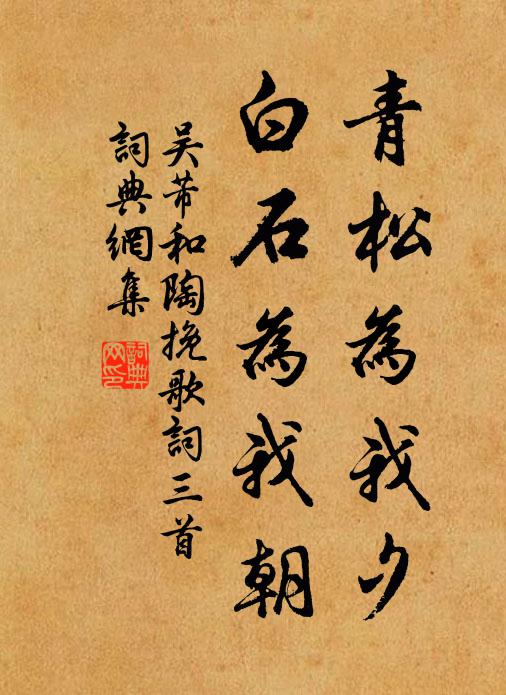 青松為我夕
白石為我朝
吴芾和陶挽歌詞三首
詞典網集
詞典網印